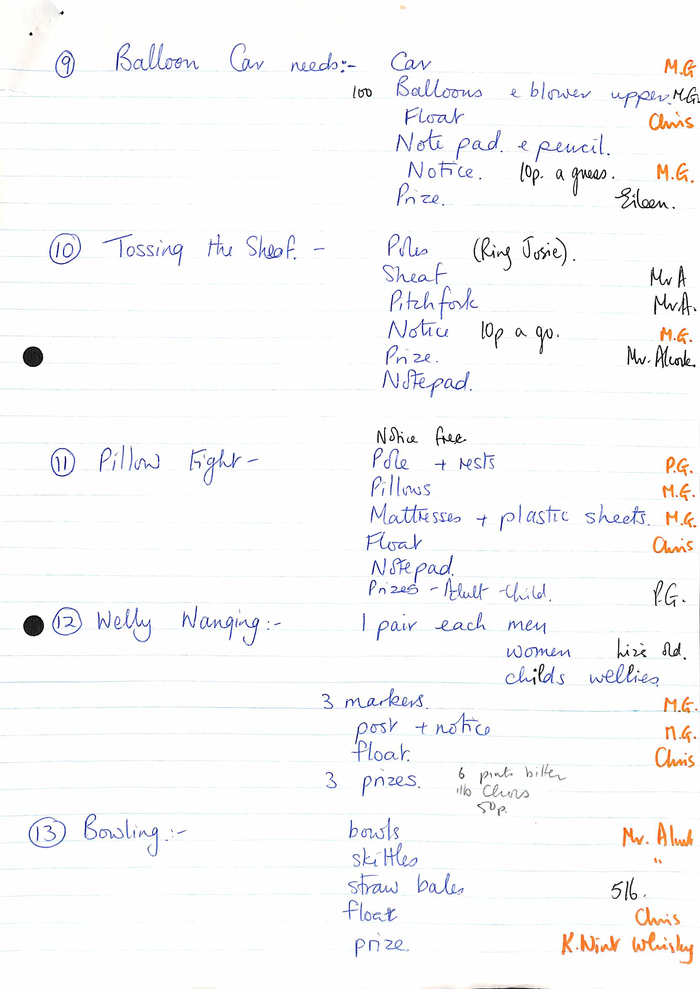 9 Balloon Car needs:- Car M.G
100 Balloons e blower upper. M.G.
Float Chris
Note pad. e pencil.
Notice. 10p. a guess. M.G.
Prize. Eileen.
10 Tossing the Sheaf. - Poles (Ring Josie).
Sheaf Mr A
Pitchfork Mr.A.
Notice 10p a go. M.G.
Prize. Mr. Alcock.
Notepad.
Notice free
11 Pillow Fight - Pole + rests P.G.
Pillows M.G.
Mattresses + plastic sheets. M.G.
Float Chris
Notepad.
Prizes - Adult - Child. P.G.
12 Welly Wanging:- 1 pair each men
women size old.
childs wellies
3 markers. M.G.
post + notice M.G.
float. Chris
3 prizes. 6 pints bitter
1lb Chocs
50p.
13 Bowling:- bowls Mr.
skittles "
straw bales 5/6.
float Chris
prize. Whisky